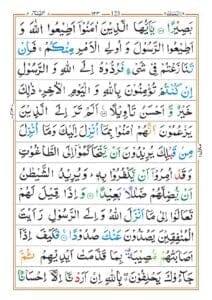 123
بَصِيْرًا ۝ يٰۤاَيُّهَا الَّذِيْنَ اٰمَنُوْۤا اَطِيْعُوا اللّٰهَ وَ
اَطِيْعُوا الرَّسُوْلَ وَ اُولِي الْاَمْرِ مِنْكُمْ ۚ فَاِنْ
تَنَازَعْتُمْ فِيْ شَيْءٍ فَرُدُّوْهُ اِلَى اللّٰهِ وَ الرَّسُوْلِ
اِنْ كُنْتُمْ تُؤْمِنُوْنَ بِاللّٰهِ وَ الْيَوْمِ الْاٰخِرِ ؕ ذٰلِكَ
خَيْرٌ وَّ اَحْسَنُ تَاْوِيْلًا ۝ اَلَمْ تَرَ اِلَى الَّذِيْنَ
يَزْعُمُوْنَ اَنَّهُمْ اٰمَنُوْا بِمَاۤ اُنْزِلَ اِلَيْكَ وَمَاۤ اُنْزِلَ
مِنْ قَبْلِكَ يُرِيْدُوْنَ اَنْ يَّتَحَاكَمُوْۤا اِلَى الطَّاغُوْتِ
وَ قَدْ اُمِرُوْۤا اَنْ يَّكْفُرُوْا بِهٖ ؕ وَيُرِيْدُ الشَّيْطٰنُ
اَنْ يُّضِلَّهُمْ ضَلٰلًاۢ بَعِيْدًا ۝ وَاِذَا قِيْلَ لَهُمْ
تَعَالَوْا اِلٰى مَاۤ اَنْزَلَ اللّٰهُ وَ اِلَى الرَّسُوْلِ رَاَيْتَ
الْمُنٰفِقِيْنَ يَصُدُّوْنَ عَنْكَ صُدُوْدًا ۝ فَكَيْفَ اِذَاۤ
اَصَابَتْهُمْ مُّصِيْبَةٌۢ بِمَا قَدَّمَتْ اَيْدِيْهِمْ ثُمَّ
جَآءُوْكَ يَحْلِفُوْنَ ۖ بِاللّٰهِ اِنْ اَرَدْنَاۤ اِلَّاۤ اِحْسَانًا